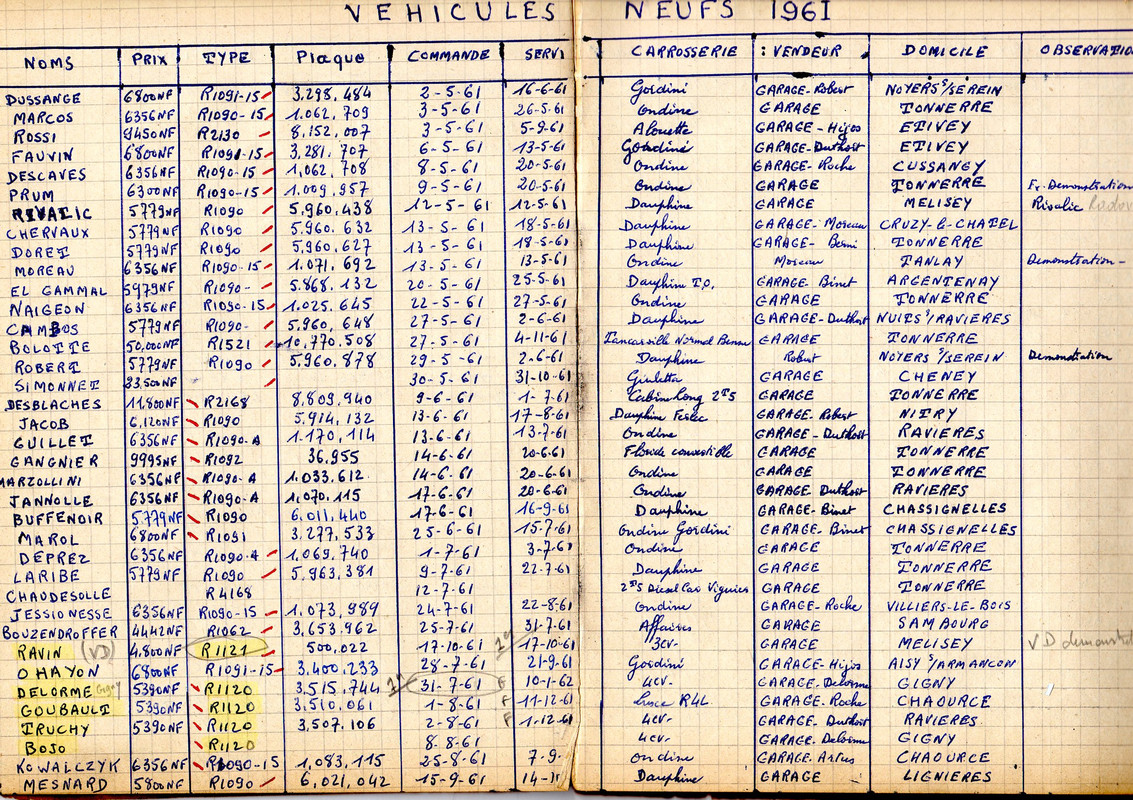 VEHICULES NEUFS 1961
NOMS PRIX TYPE Plaque COMMANDE SERVI CARROSSERIE : VENDEUR DOMICILE OBSERVATIO
DUSSANGE 6800NF R1091-15 3.298.484 2-5-61 16-6-61 Gordini GARAGE-Robert NOYERS S/SEREIN
MARCOS 6356NF R1090-15 1.062.709 3-5-61 26-5-61 Ondine GARAGE TONNERRE
ROSSI 9450NF R2130 8.152.007 3-5-61 5-9-61 Alouette GARAGE-Hijos ETIVEY
FAUVIN 6800NF R1091-15 3.281.707 6-5-61 13-5-61 Gordini GARAGE-Duthoit ETIVEY
DESCAVES 6356NF R1090-15 1.062.708 8-5-61 20-5-61 Ondine GARAGE-Roche CUSSANGY
PRUM 6300NF R1090-15 1.009.957 9-5-61 20-5-61 Ondine GARAGE TONNERRE Ex-Demonstration
RIVALIC 5779NF R1090 5.960.438 12-5-61 12-5-61 Dauphine GARAGE MELISEY Rivalic
CHERVAUX 5779NF R1090 5.960.632 13-5-61 18-5-61 Dauphine GARAGE-Moreau CRUZY-le-CHATEL
DORET 5779NF R1090 5.960.627 13-5-61 18-5-61 Dauphine GARAGE- TONNERRE
MOREAU 6356NF R1090-15 1.071.692 13-5-61 13-5-61 Ondine Moreau TANLAY Demonstration-
EL GAMMAL 5979NF R1090- 5.868.132 20-5-61 25-5-61 Dauphine T.O. GARAGE Binet ARGENTENAY
NAIGEON 6356NF R1090-15 1.025.645 22-5-61 27-5-61 Ondine GARAGE TONNERRE
CAMBOS 5779NF R1090- 5.960.648 27-5-61 2-6-61 Dauphine GARAGE-Duthoit NUITS S/RAVIERES
BOLOTTE 50.000NF R1521 10.770.508 27-5-61 4-11-61 Tancarville Normal Benne GARAGE TONNERRE
ROBERT 5779NF R1090 5.960.878 29-5-61 2-6-61 Dauphine Robert NOYERS S/SEREIN Demonstration
SIMONNET 23.500NF 30-5-61 31-10-61 Giuletta GARAGE CHENEY
DESBLACHES 11.800NF R2168 8.809.940 9-6-61 1-7-61 Cabine Long 2T5 GARAGE TONNERRE
JACOB 6.120NF R1090 5.914.132 13-6-61 17-8-61 Dauphine Ferlec GARAGE-Robert NITRY
GUILLET 6356NF R1090-A 1.170.114 13-6-61 13-7-61 Ondine GARAGE-Duthoit RAVIERES
GANGNIER 9995NF R1092 36.955 14-6-61 20-6-61 Floride convertible GARAGE TONNERRE
MARZOLLINI 6356NF R1090-A 1.033.612 14-6-61 20-6-61 Ondine GARAGE TONNERRE
JANNOLLE 6356NF R1090-A 1.070.115 17-6-61 20-6-61 Ondine GARAGE Duthoit RAVIERES
BUFFENOIR 5.779NF R1090 6.011.440 17-6-61 16-9-61 Dauphine GARAGE-Binet CHASSIGNELLES
MAROL 6800NF R1091 3.277.533 25-6-61 15-7-61 Ondine Gordini GARAGE-Binet CHASSIGNELLES
DEPREZ 6356NF R1090-A 1.069.740 1-7-61 3-7-61 Ondine GARAGE TONNERRE
LARIBE 5779NF R1090 5.963.381 9-7-61 22-7-61 Dauphine GARAGE TONNERRE
CHAUDESOLLE R4168 12-7-61 2T5 Diesel Car Viguier GARAGE TONNERRE
JESSIONESSE 6356NF R1090-15 1.073.989 24-7-61 22-8-61 Ondine GARAGE-Roche VILLIERS-LE-BOIS
BOUZENDROFFER 4442NF R1062 3.653.962 25-7-61 31-7-61 Affaires GARAGE SAMBOURG
RAVIN (VD) 4.800NF R1121 500.022 17-10-61 17-10-61 3cv- GARAGE MELISEY VD demonst
OHAYON 6800NF R1091-15 3.400.233 28-7-61 21-9-61 Gordini GARAGE-Hijos AISY S/ARMANCON
DELORME Gigny 5390NF R1120 3.515.744 31-7-61 F 10-1-62 4cv- GARAGE-Delorme GIGNY
GOUBAULT 5390NF R1120 3.510.061 1-8-61 F 11-12-61 Luxe R4L GARAGE-Roche CHAOURCE
TRUCHY 5390NF R1120 3.507.106 2-8-61 F 1-12-61 4cv- GARAGE-Duthoit RAVIERES
BOJO R1120 8-8-61 4cv- GARAGE-Delorme GIGNY
KOWALCZYK 6356NF R1090-15 1.083.115 25-8-61 7-9- Ondine GARAGE-Artus CHAOURCE
MESNARD 5800NF R1090 6.021.042 15-9-61 14- Dauphine GARAGE LIGNIERES